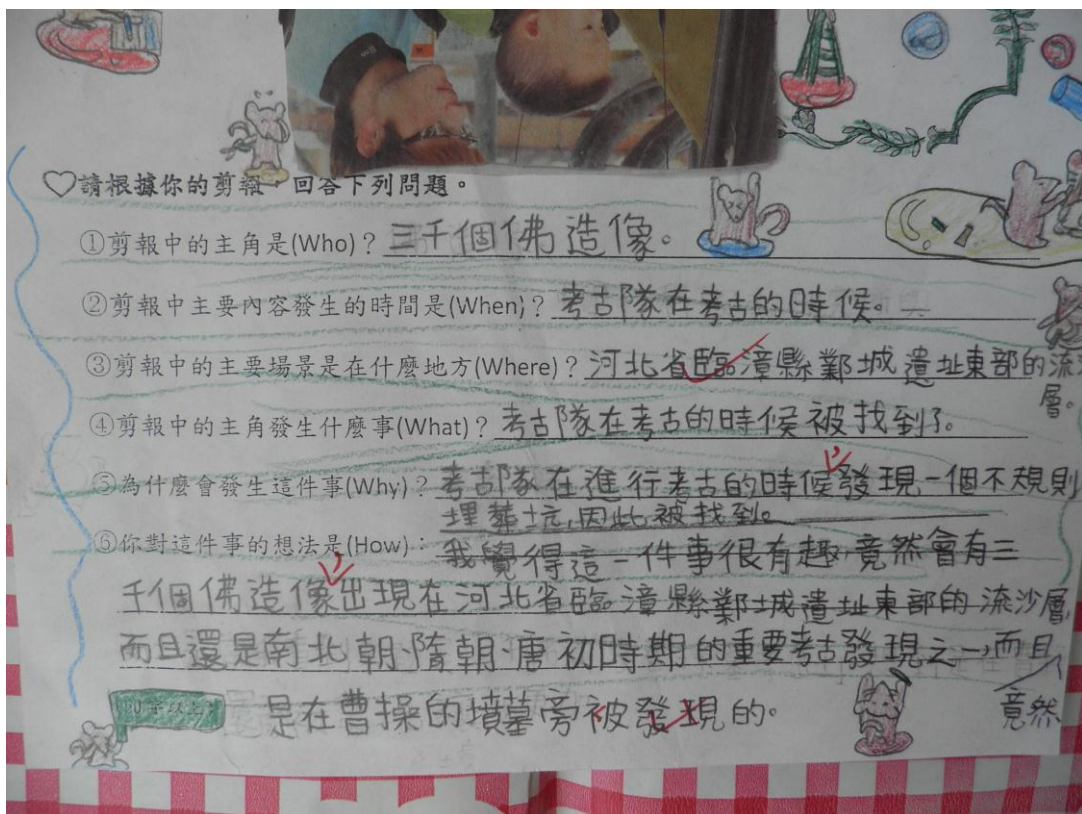 ♡請根據你的剪報,回答下列問題。
①剪報中的主角是(Who)?三千個佛造像。
②剪報中主要內容發生的時間是(When)?考古隊在考古的時候。
③剪報中的主要場景是在什麼地方(Where)?河北省臨漳縣鄴城遺址東部的流沙
層。
④剪報中的主角發生什麼事(What)?考古隊在考古的時候被找到了。
⑤為什麼會發生這件事(Why)?考古隊在進行考古的時候發現一個不規則
埋葬坑,因此被找到。
⑥你對這件事的想法是(How):我覺得這一件事很有趣,竟然會有三
千個佛造像出現在河北省臨漳縣鄴城遺址東部的流沙層,
而且還是南北朝、隋朝、唐初時期的重要考古發現之一,而且
竟然
是在曹操的墳墓旁被發現的。
字以上